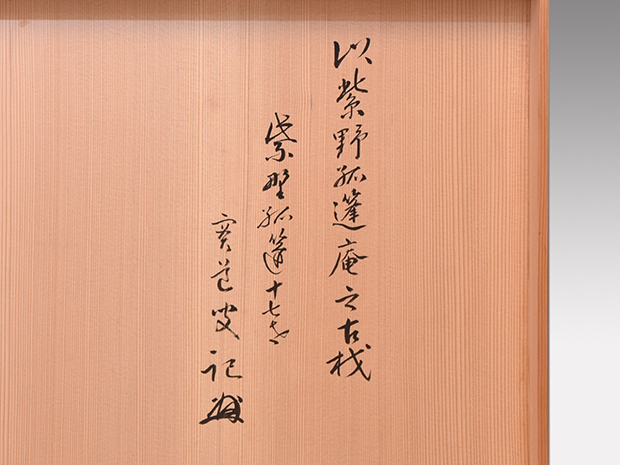 以紫野孤篷庵之古材
紫野孤篷十七世
道叟記